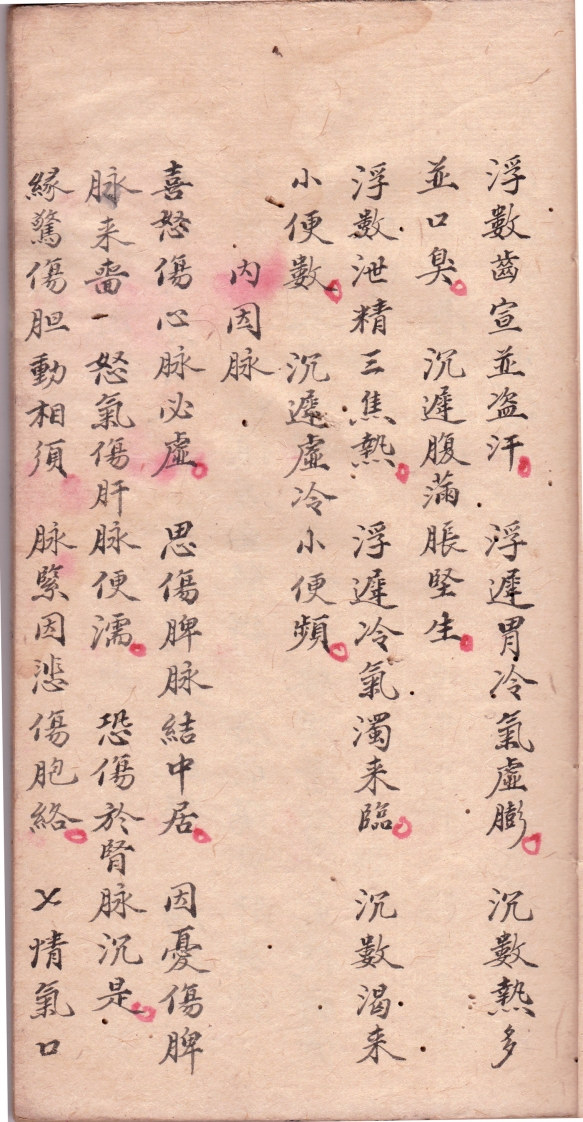 浮數齒宣並盗汗 浮遲胃冷氣虛膨 沉數熱多
並口臭 沉遲腹滿脹堅生
浮數泄精三焦熱 浮遲冷氣濁来臨 沉數渴来
小便數 沉遲虛冷小便頻
内因脉
喜怒傷心脉必虛 思傷脾脉結中居 因憂傷脾
脉来嗇 怒氣傷肝脉便濡 恐傷於腎脉沉是
緣驚傷胆動相須 脉緊因悲傷胞絡 㐅情氣口